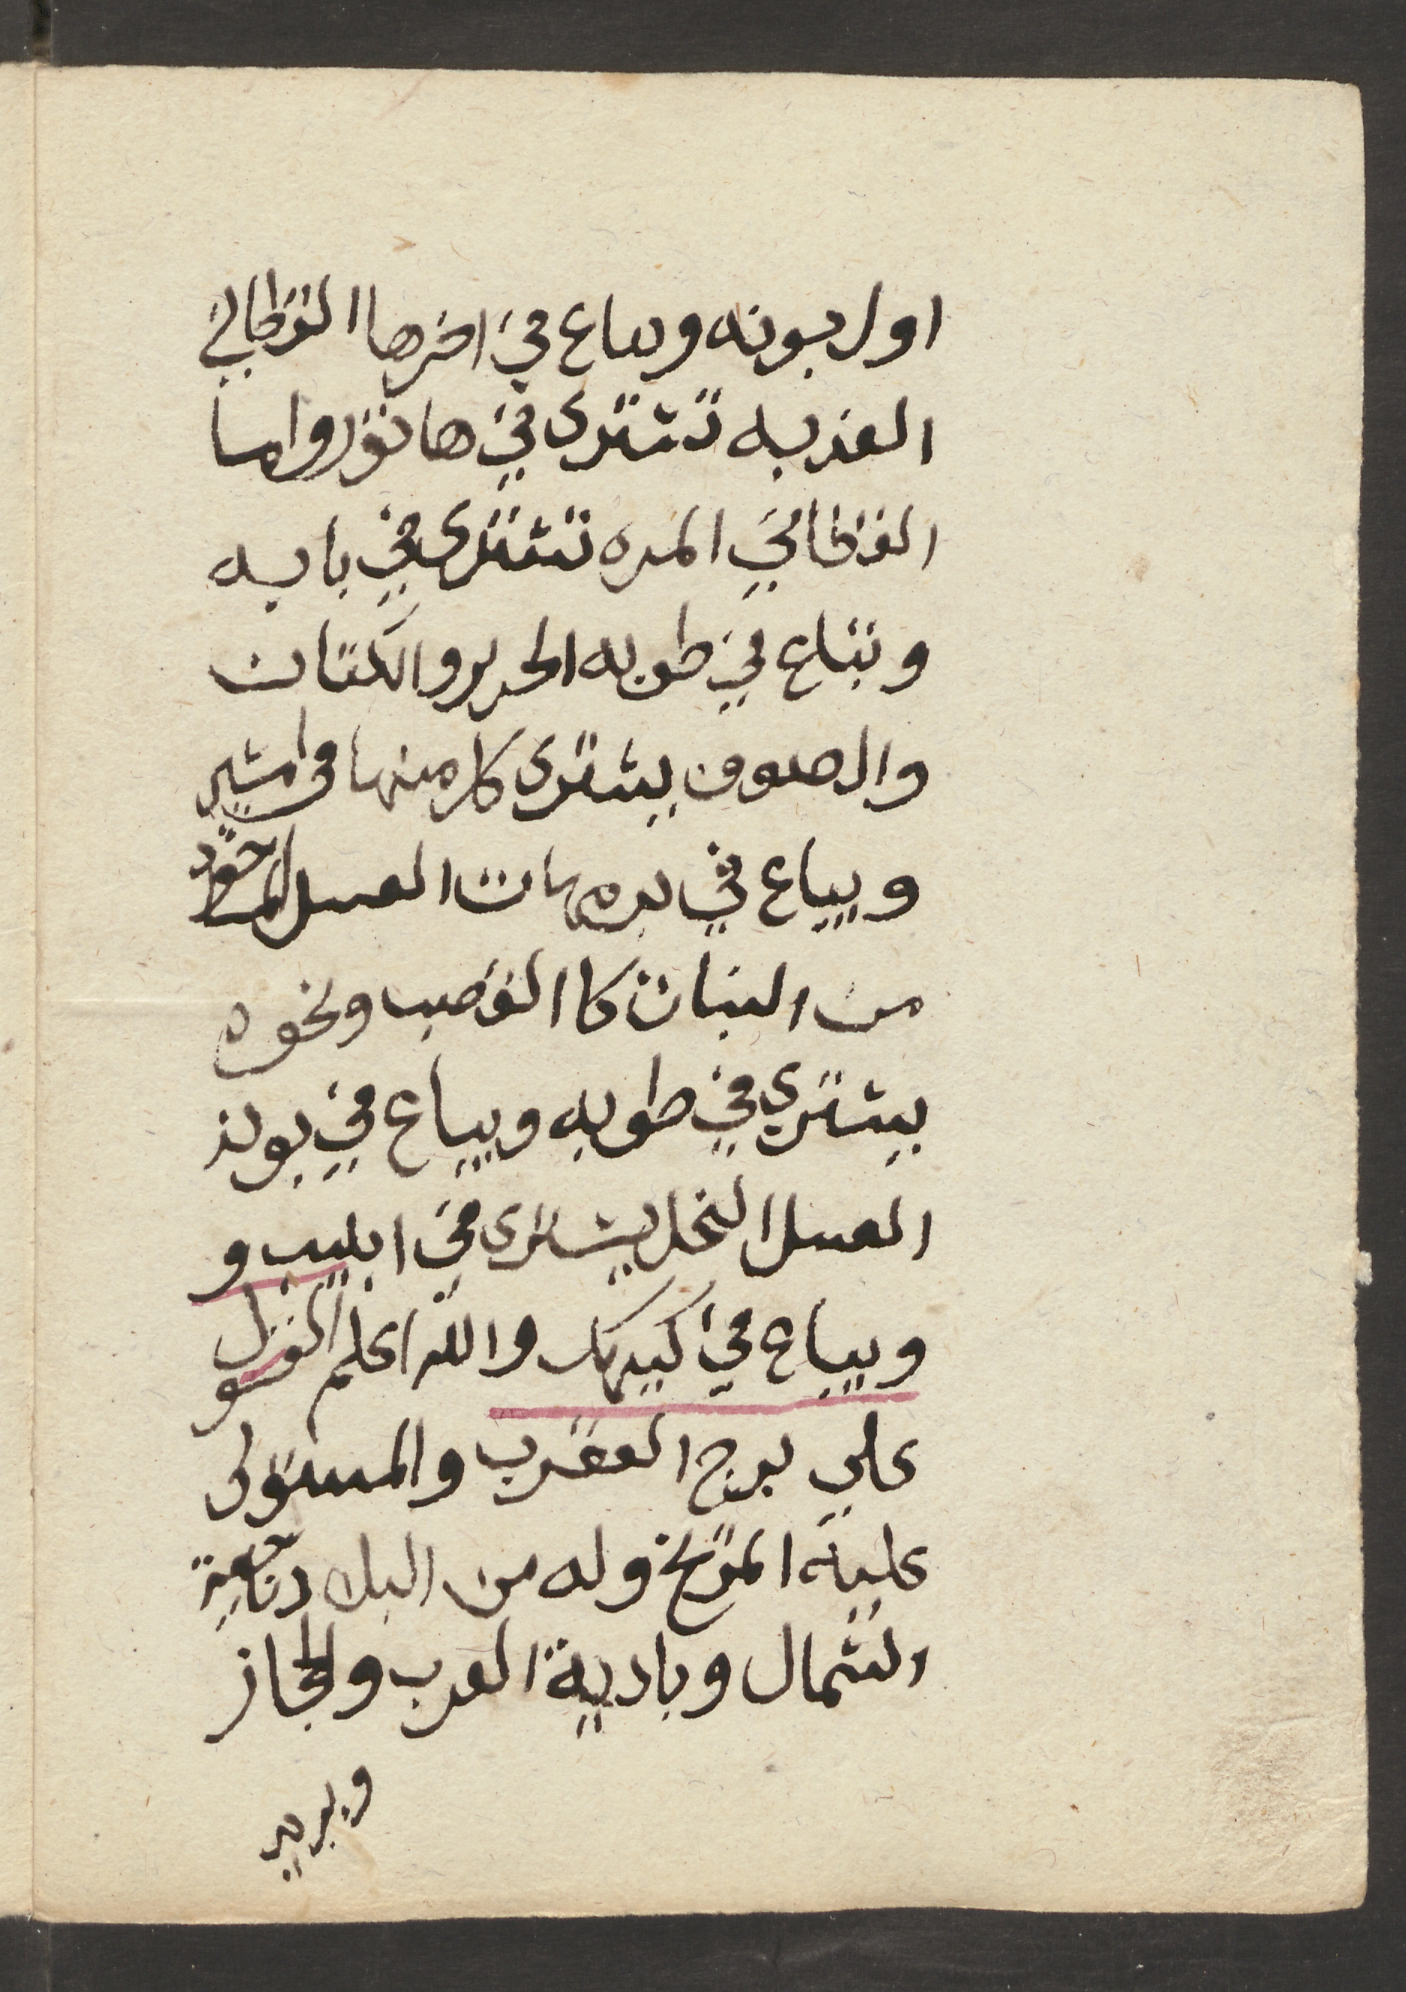 اول بونه ويباع في اخرها القطاني
العذبه تشترى في هاتور واما
القطاني المره تشترى في بابه
وتباع في طوبه الحرير والكتان
والصوف يشترى كل منها في امشير
ويباع في برمهات العسل الماخود
من النبات كا القصب ونحوه
يشترى في طوبه ويباع في بونه
العسل النحل يشترى في ابيب و
ويباع في كيهك والله اعلم القول
على برج العقرب والمستولى
عليه المريخ وله من البلاد ناحية
الشمال وبادية العرب والحجاز